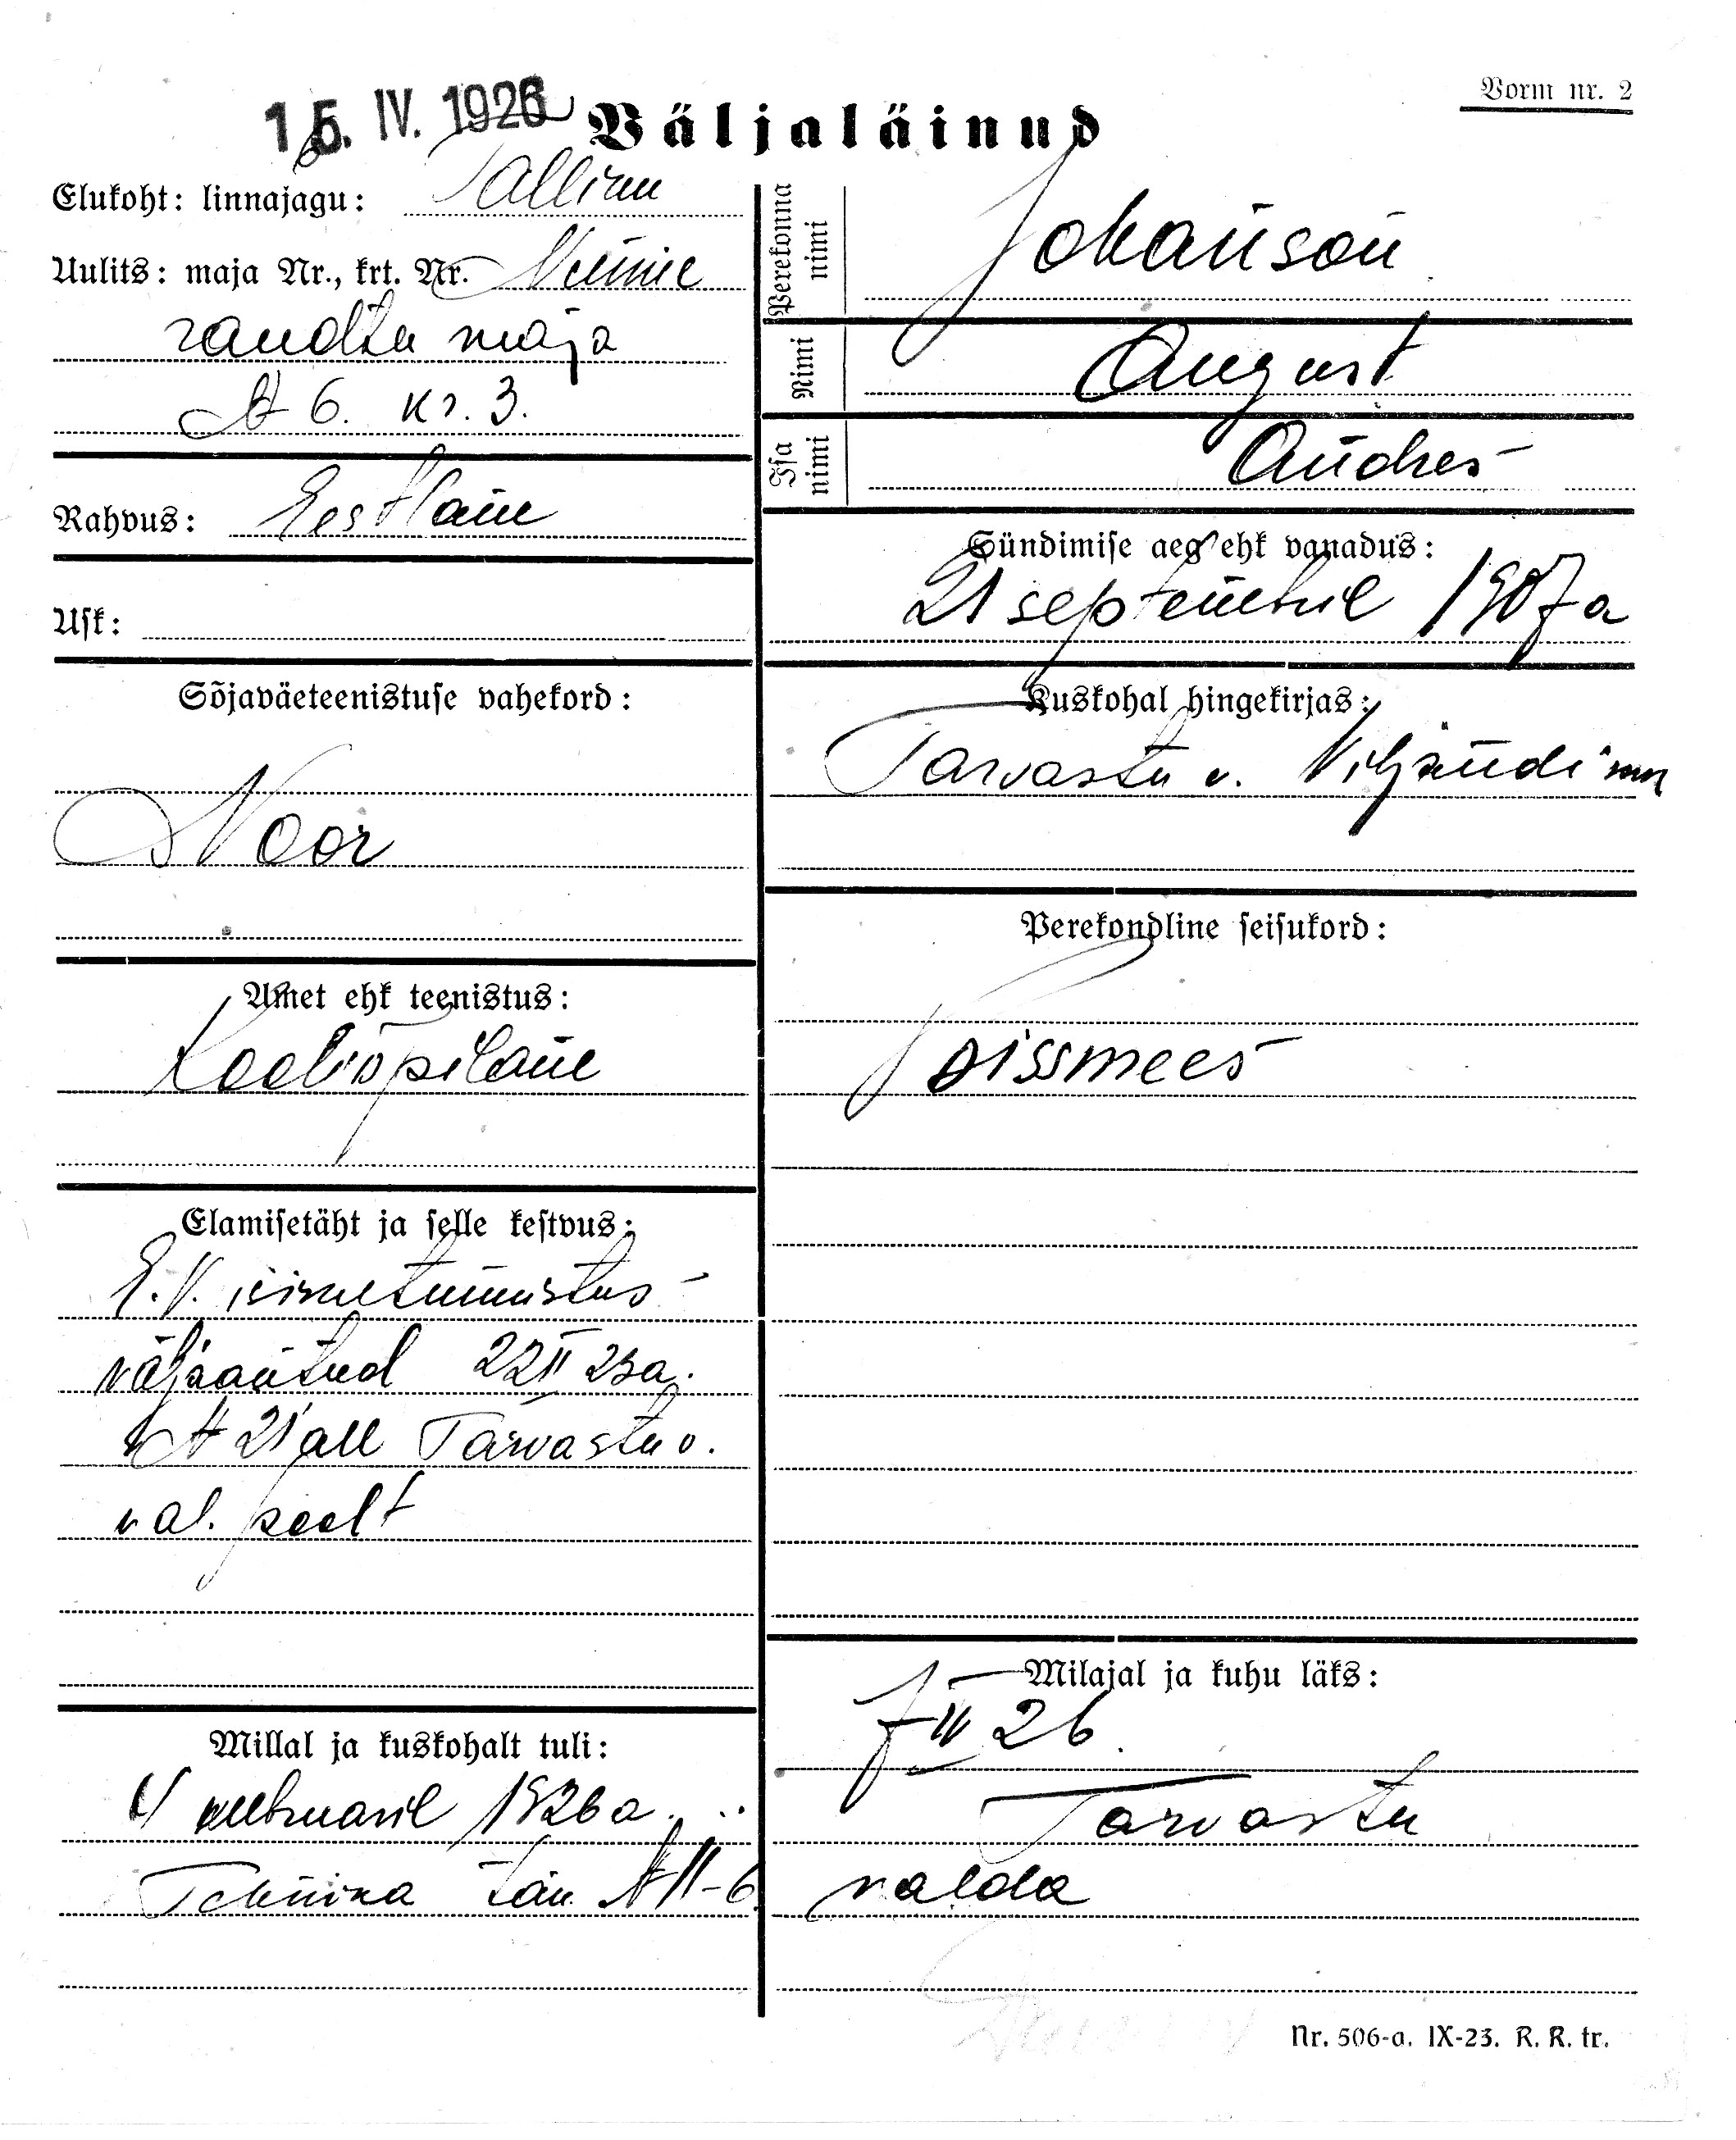 Vorm nr. 2
15. IV. 1926
Väljaläinud
Elukoht: linnajagu: Tallinn
Uulits: maja Nr., krt. Nr. Nümie
raudtee maja
№ 6. kr. 3.
Rahvus: Eestlane
Usk:
Sõjaväeteenistuse vahekord:
Noor
Amet ehk teenistus:
Kooliõpilane
Elamisetäht ja selle kestvus:
E.V. isikutunnistus
väljaantud 22 II 23 a.
№ 21 all Tarvastu v.
val. poolt
Millal ja kuskohalt tuli:
4 veebruaril 1926 a.
Tehnika tän. № 11-6
Perekonna nimi
Johanson
Nimi
August
Isa nimi
Andres
Sündimise aeg ehk vanadus:
21 septembril 1907 a
Kuskohal hingekirjas:
Tarvastu v. Viljandi mn
Perekondline seisukord:
Poissmees
Milajal ja kuhu läks:
26
Tarvastu
valda
Nr. 506-a. IX-23. R. R. tr.